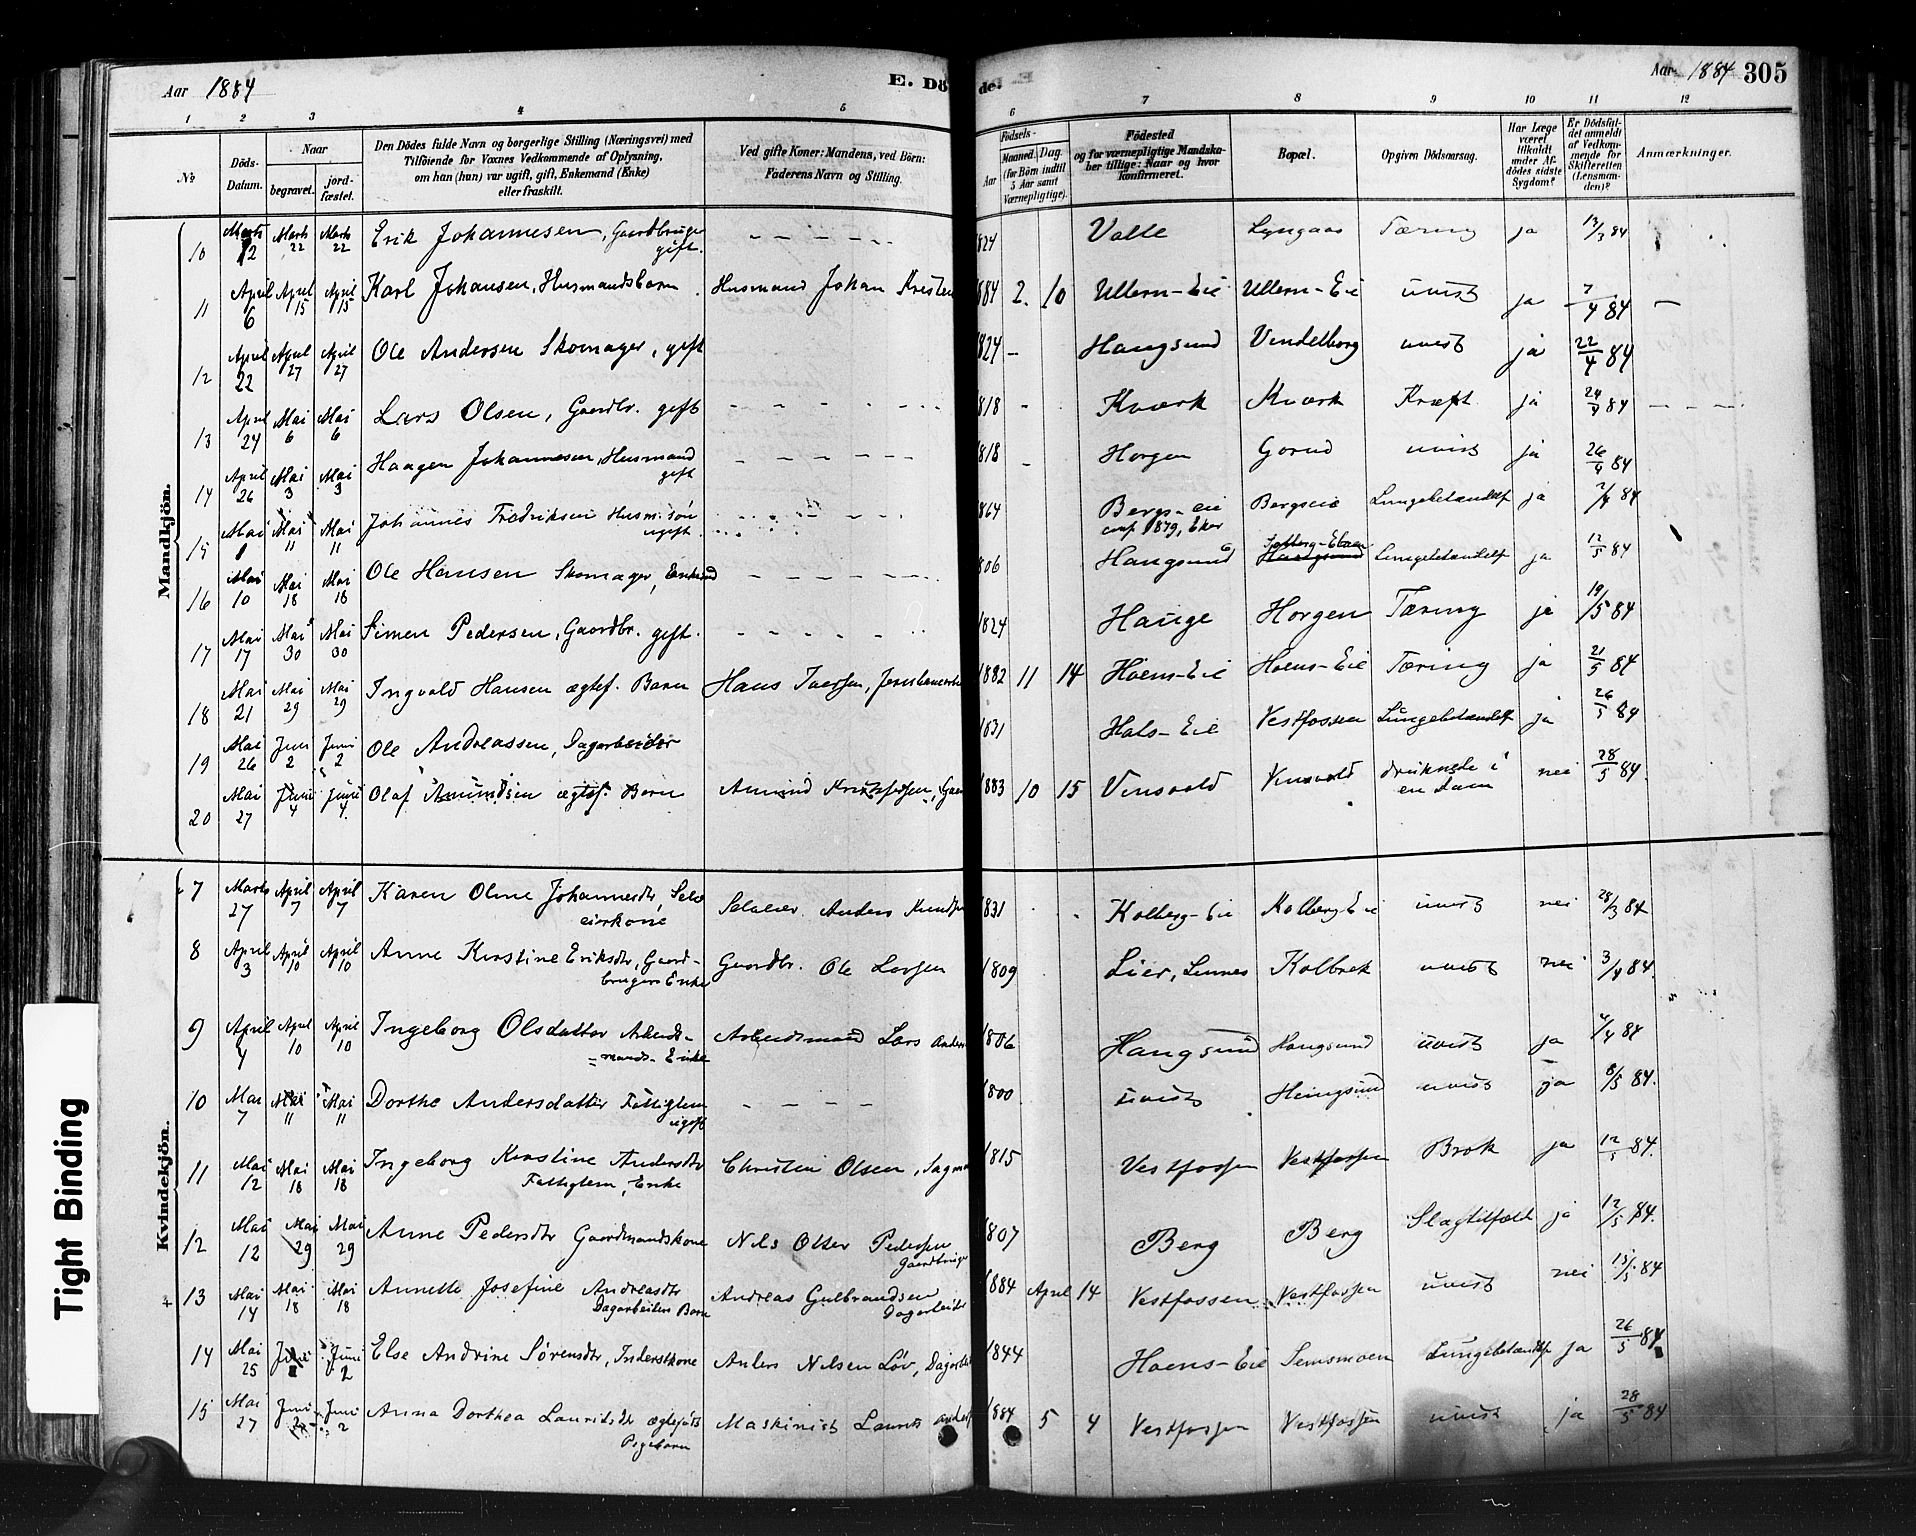 Aar 1884 E. Dö de. Aar 1884 305
1 2 3 4 5 6 7 8 9 10 11 12
No Döds-Datum. Naar begravet. jordfæstet. Den Dödes fulde Navn og borgerlige Stilling (Næringsvei) med Tilföiende for Voxnes Vedkommende af Oplysning, om han (hun) var ugift, gift, Enkemand (Enke) eller fraskilt. Ved gifte Koner: Mandens, ved Börn: Faderens Navn og Stilling. Födsels- Aar Maaned. Dag. (for Börn indtil 5 Aar samt Værnepligtige). Födested og for værnepligtige Mandskaber tillige: Naar og hvor konfirmeret. Bopæl. Opgiven Dödsaarsag. Har Læge været tilkaldt under Afdödes sidste Sygdom? Er Dödsfaldet anmeldt af Vedkommende for Skifteretten (Lensmanden)? Anmærkninger.
Mandkjön.
10 Marts 12 Marts 22 Marts 22 Erik Johannesen, Gaardbruger gift. - - - - - 1824 Valle Lyngaas Tæring ja 13/3 84
11 April 6 April 15 April 15 Karl Johansen, Husmandsbarn Husmand Johan Kristen 1884 2. 10 Ullern-Eie Ullern-Eie uvist ja 7/4 84 -
12 April 22 April 27 April 27 Ole Andersen Skomager, gift 1824 - Haugsund Vendelborg uvist ja 22/4 84
13 April 24 Mai 6 Mai 6 Lars Olsen, Gaardbr. gift - - - - - 1818 - Kværk Kværk Kræft ja 24/4 84 - - - -
14 April 26 Mai 3 Mai 3 Haagen Johannesen, Husmand gift - - - - - 1818 - Horgen Gorud uvist ja 26/4 84
15 Mai 1 Mai 11 Mai 11 Johannes Fredriksen Husm. sön ugift. 1864 Bergs-eie conf. 1879, Eker Bergseie Lungebetændels ja 2/4 84
16 Mai 10 Mai 18 Mai 18 Ole Hansen Skomager, Enkemd - - - - - 1806 Haugsund Haugsund Lungebetændels ja 12/5 84
17 Mai 17 Mai 30 Mai 30 Simen Pedersen, Gaardbr. gift. - - - - - 1824 Hauge Horgen Tæring ja 19/5 84
18 Mai 21 Mai 29 Mai 29 Ingvald Hansen ægtef. Barn Hans Iversen, 1882 11 14 Hoens-Eie Hoens-Eie Tæring ja 21/5 84
19 Mai 26 Juni 2 Juni 2 Ole Andreassen, Dagarbeider 1831 Hals-Eie Vestfossen Lungebetændels ja 26/5 84
20 Mai 27 Juni 4 Juni 4 Olaf Amundsen ægtef. Barn Amund Kristofersen, 1883 10 15 Vinsvold Vinsvold druknede i en Dam nei 28/5 84.
Kvindekjön.
7 Marts 27 April 7 April 7 Karen Oline Johannesdtr, Selveierkone Selveier Anders Knudsen 1831 Kolberg-Eie Kolberg-Eie uvist nei 28/3 84
8 April 3 April 10 April 10 Anne Kirstine Eriksdtr, Gaardbrugers Enke Gaardbr. Ole Larsen 1809 Lier, Linnes Kolbræk uvist nei 3/4 84.
9 April 4 April 10 April 10 Ingeborg Olsdatter Arbeids-mands-Enke Arbeidsmand Lars Anders 1806 Haugsund Haugsund uvist ja 4/4 84
10 Mai 7 Mai 11 Mai 11 Dorthe Andersdatter Fattiglem ugift - - - - 1800 uvist Haugsund uvist ja 8/5 84.
11 Mai 12 Mai 18 Mai 18 Ingeborg Kirstine Andersdtr Fattiglem, Enke Christen Olsen, Sagm 1815 Vestfossen Vestfossen Brok ja 12/5 84.
12 Mai 12 Mai 29 Mai 29 Anne Pedersdtr Gaardmandskone Nils Otter Pedersen Gaardbruger 1807 Berg Berg Slagtilfælde ja 12/5 84.
13 Mai 14 Mai 18 Mai 18 Annette Josefine Andreasdtr Dagarbeiders Barn Andreas Gulbrandsen Dagarbeider 1884 April 14 Vestfossen Vestfossen uvist nei 15/5 84
14 Mai 25 Juni Juni 2 Else Andrine Sörensdtr, Inderstkone Anders Nilsen Löv, Dagarbei 1844 Hoens-Eie Semsmoen Lungebetændels ja 26/5 84
15 Mai 27 Juni 2 Juni 2 Anna Dorthea Lauritsdtr ægteföds Pigebarn Maskinist Laurits Anders 1884 5 4 Vestfossen Vestfossen uvist ja 28/5 84
Tight Binding